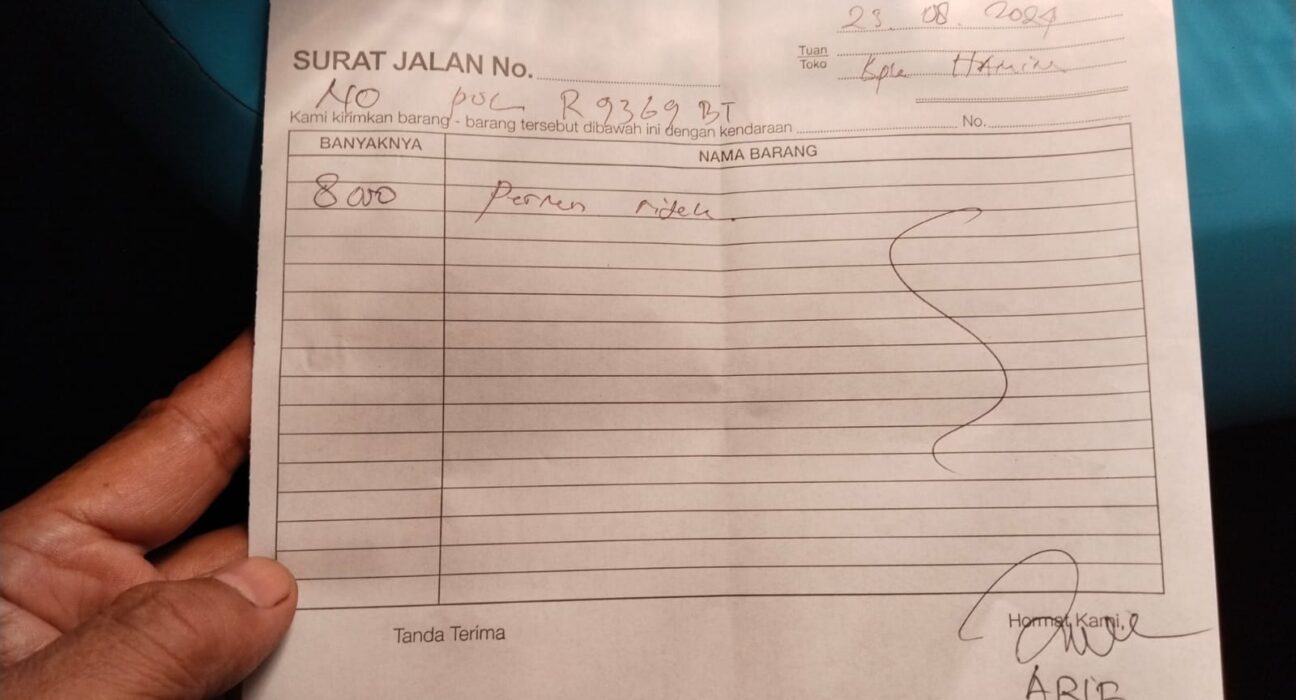 23. 08. 2024
SURAT JALAN No.
Tuan
Toko
Bpk HAmim
No pol R 9369 BT
Kami kirimkan barang - barang tersebut dibawah ini dengan kendaraan No.
BANYAKNYA NAMA BARANG
8000
Tanda Terima Hormat Kami,
ARIF